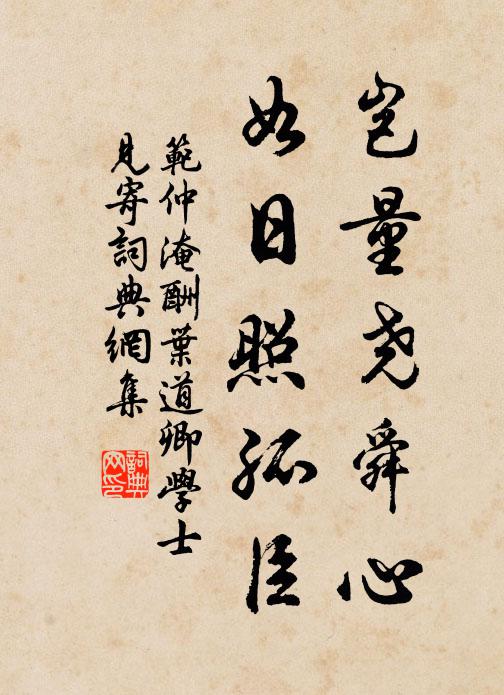 岂量尧舜心
如日照孤臣
範仲淹酬葉道卿學士
見寄詞典網集
詞典網印